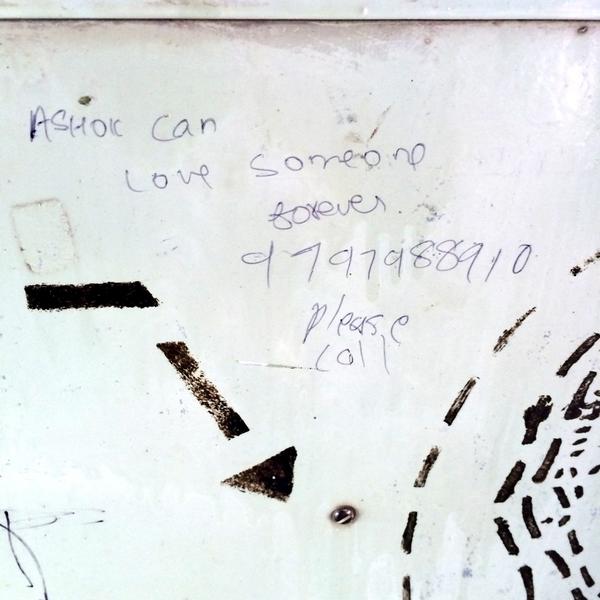 ASHOK Can
Love Someone
forever
9797988910
please
call